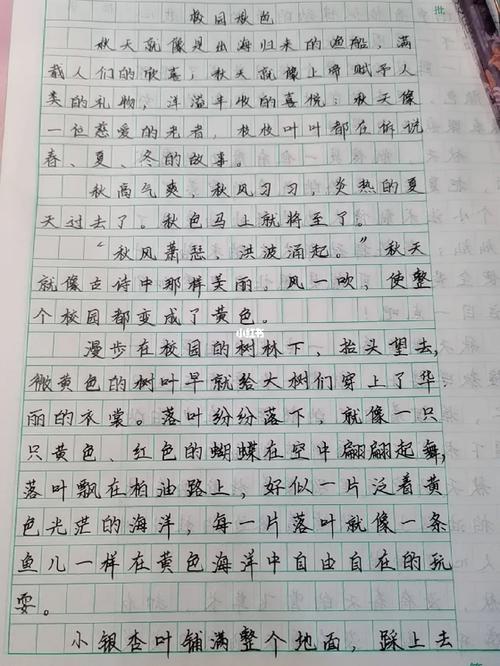 批
校园秋色
秋天就像是出海归来的渔船，满
载人们的欣喜；秋天就像上帝赋予人
类的礼物，洋溢丰收的喜悦；秋天像
一位慈爱的老者，枝枝叶叶都在诉说
春、夏、冬的故事。
秋高气爽，秋风习习，炎热的夏
天过去了。秋色马上就将至了。
“秋风萧瑟，洪波涌起。”秋天
就像古诗中那样美丽。风一吹，使整
个校园都变成了黄色。
小红书
漫步在校园的树林下，抬头望去，
微黄色的树叶早就给大树们穿上了华
丽的衣裳。落叶纷纷落下，就像一只
只黄色、红色的蝴蝶在空中翩翩起舞，
落叶飘在柏油路上，好似一片泛着黄
色光茫的海洋，每一片落叶就像一条
鱼儿一样在黄色海洋中自由自在的玩
耍。
小银杏叶铺满整个地面，踩上去